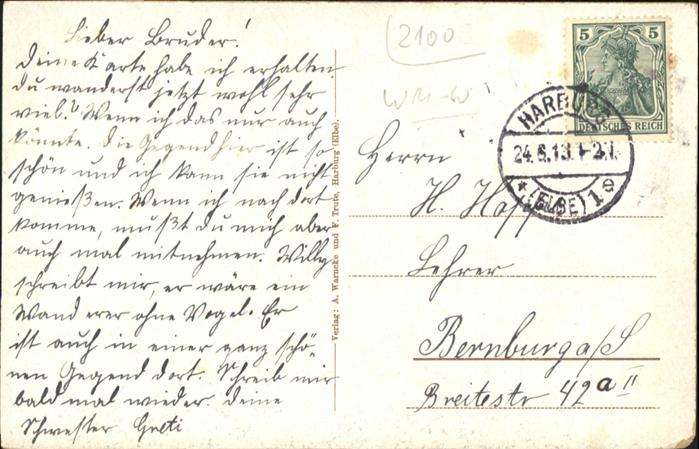 Lieber Bruder!
Deine Karte habe ich erhalten
du wanderst jetzt wohl sehr
viel? Wenn ich das nur auch
könnte. Die Gegend hier ist so
schön und ich kann sie nicht
genießen. Wenn ich nach dort
komme, mußt du mich aber
auch mal mitnehmen. Willy
schreibt mir, er wäre ein
Wanderer ohne Vogel. Er
ist auch in einer ganz schö-
nen Gegend dort. Schreib mir
bald mal wieder. Deine
Schwester Greti
Verlag: A. Warncke und F. Trute, Harburg (Elbe).
2100
5 5
DEUTSCHES REICH
HARBURG
24.6.13. 1-2N.
* (ELBE) 1 e
Herrn
H.
Lehrer
Bernburg a/S
Breitestr 42a II